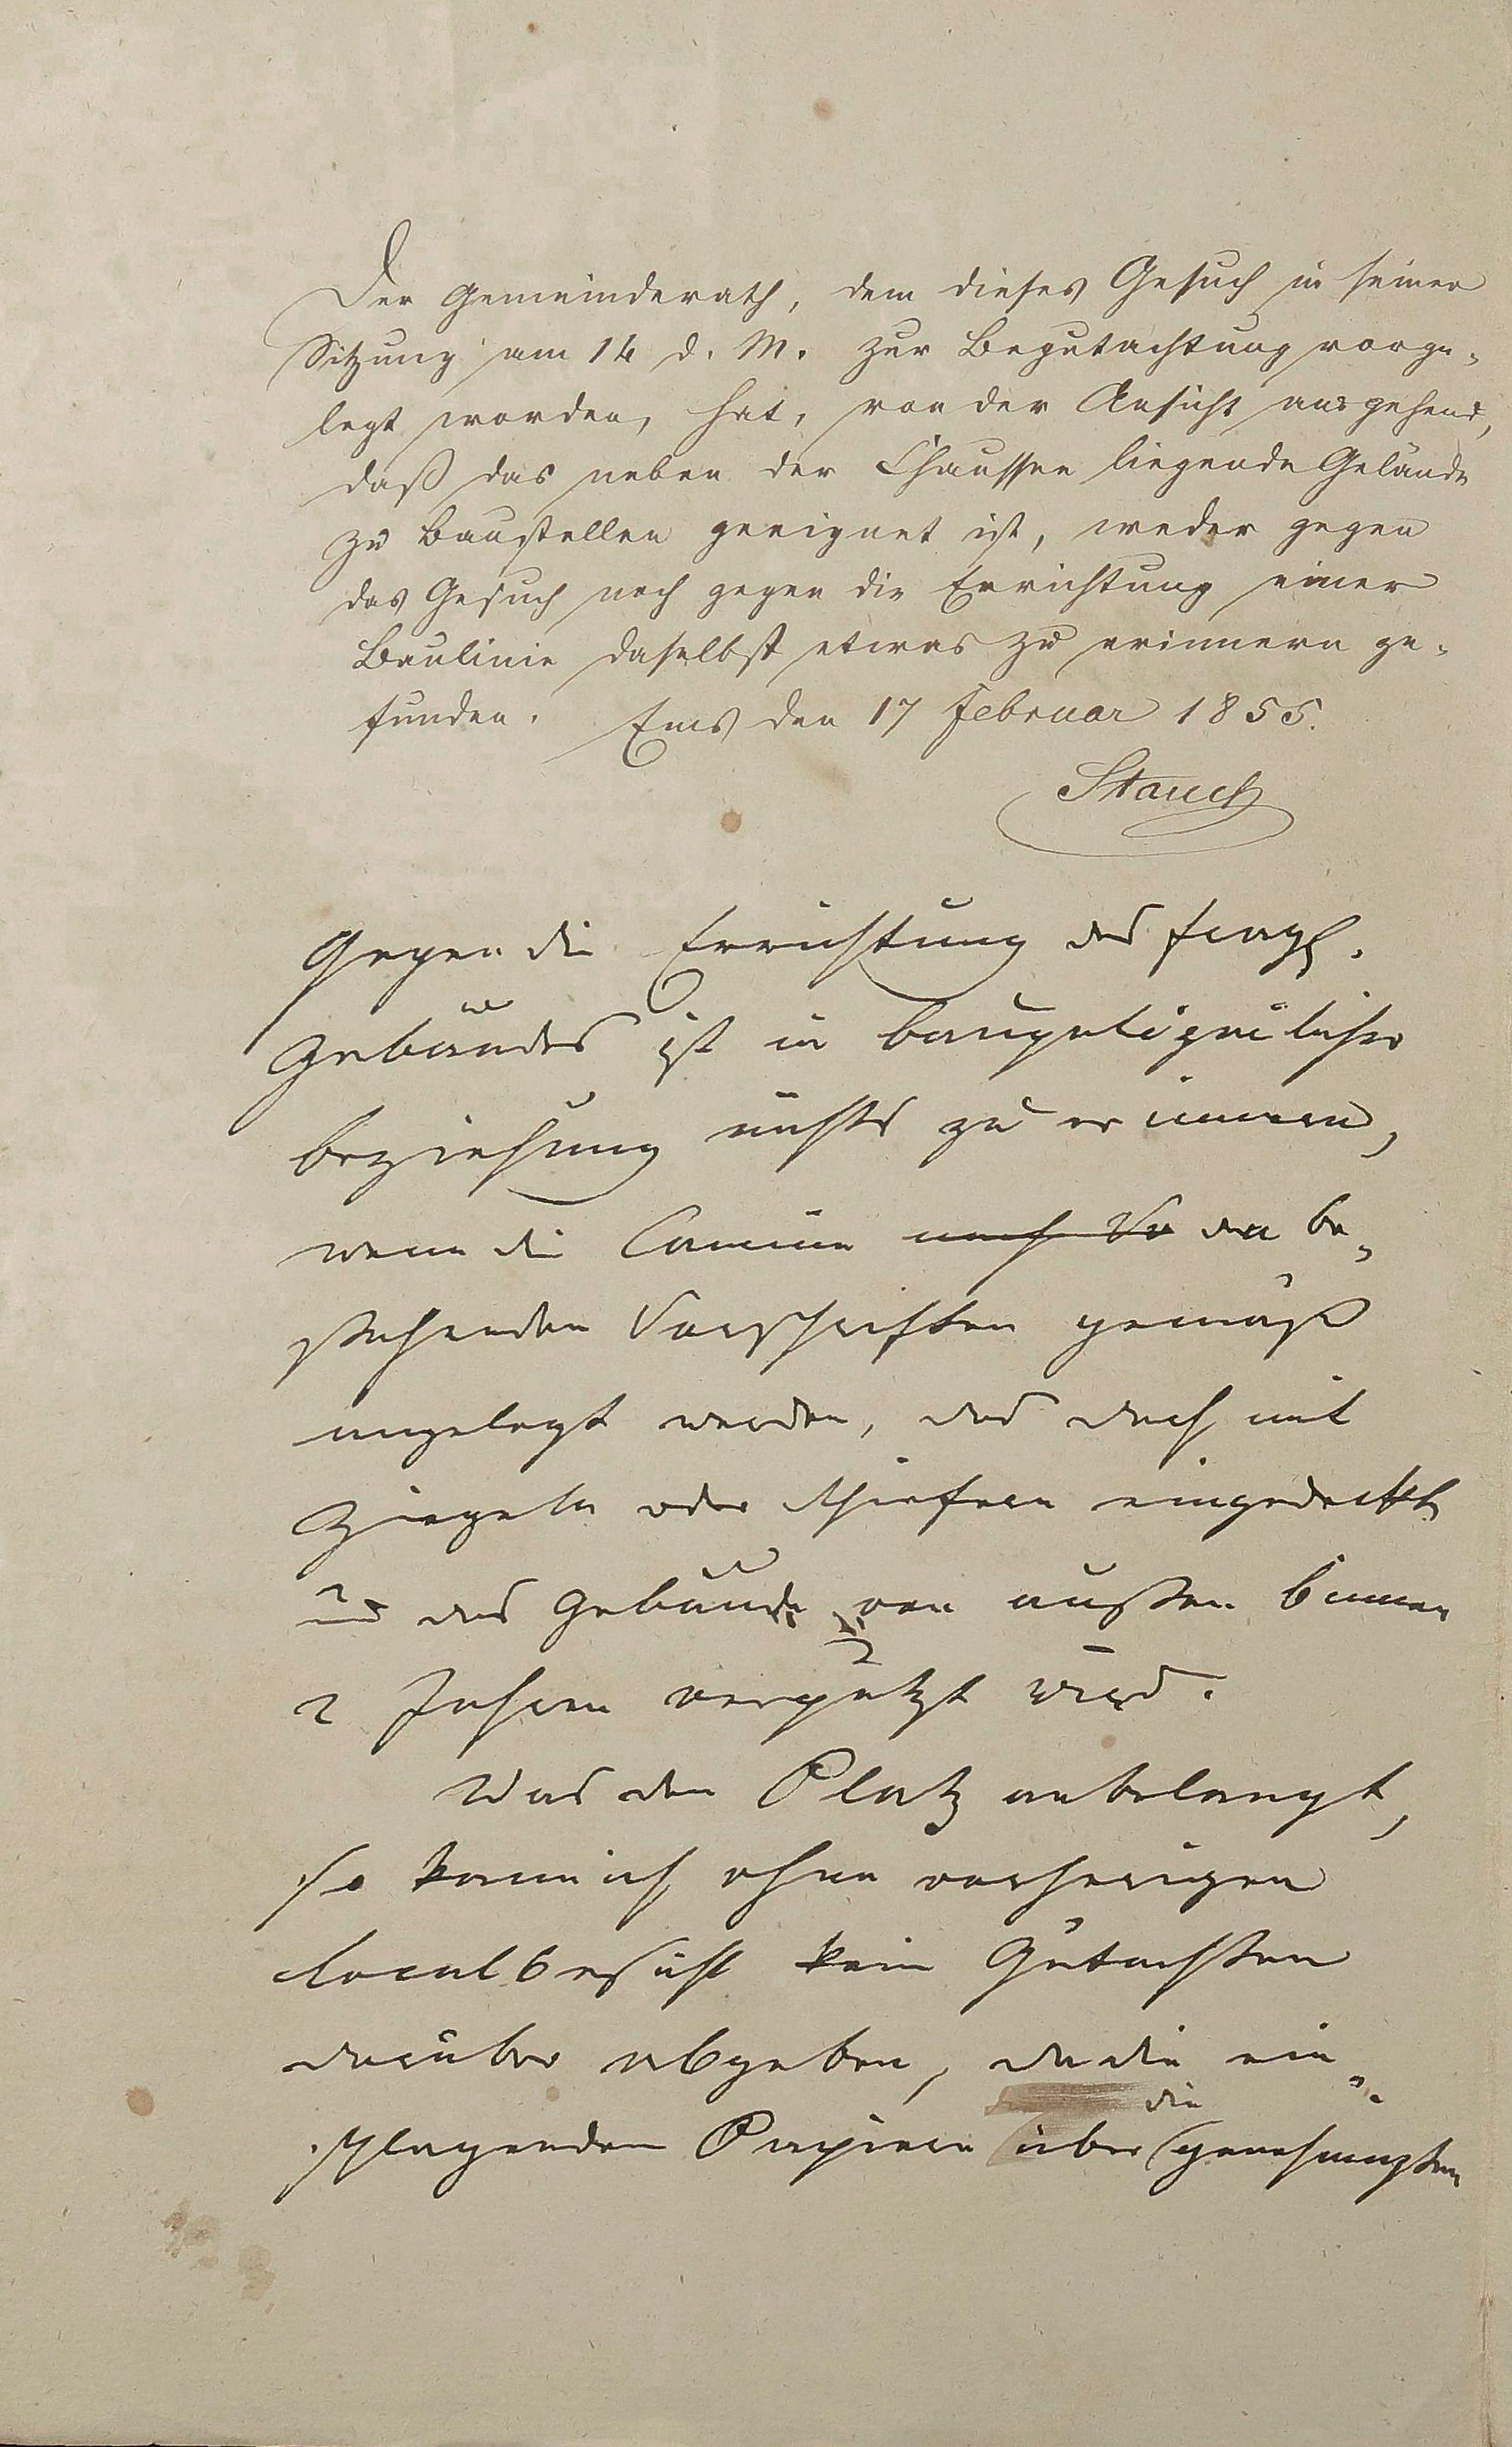 Der Gemeinderath, dem dieses Gesuch in seiner
Sitzung am 14 d. M. zur Begutachtung vorge-
legt worden, hat, von der Ansicht ausgehend,
daß das neben der Chaussee liegende Gelände
zu Baustellen geeignet ist, weder gegen
das Gesuch noch gegen die Errichtung einer
Baulinie daselbst etwas zu erinnern ge-
funden. Ems den 17 Februar 1855.
Stauch
Gegen die Errichtung des fragl.
Gebäudes ist in baupolizeilicher
Beziehung nichts zu erinnern,
wenn die Camine nach Vo den be-
stehenden Vorschriften gemäß
angelegt werden, das Dach mit
Ziegeln oder Schiefern eingedeckt
und das Gebäude von außen binnen
2 Jahren verputzt wird.
Was den Platz anbelangt,
so kann ich ohne vorherigen
Localbesicht kein Gutachten
darüber abgeben, da die ein-
schlagenden Papiere über die genehmigten